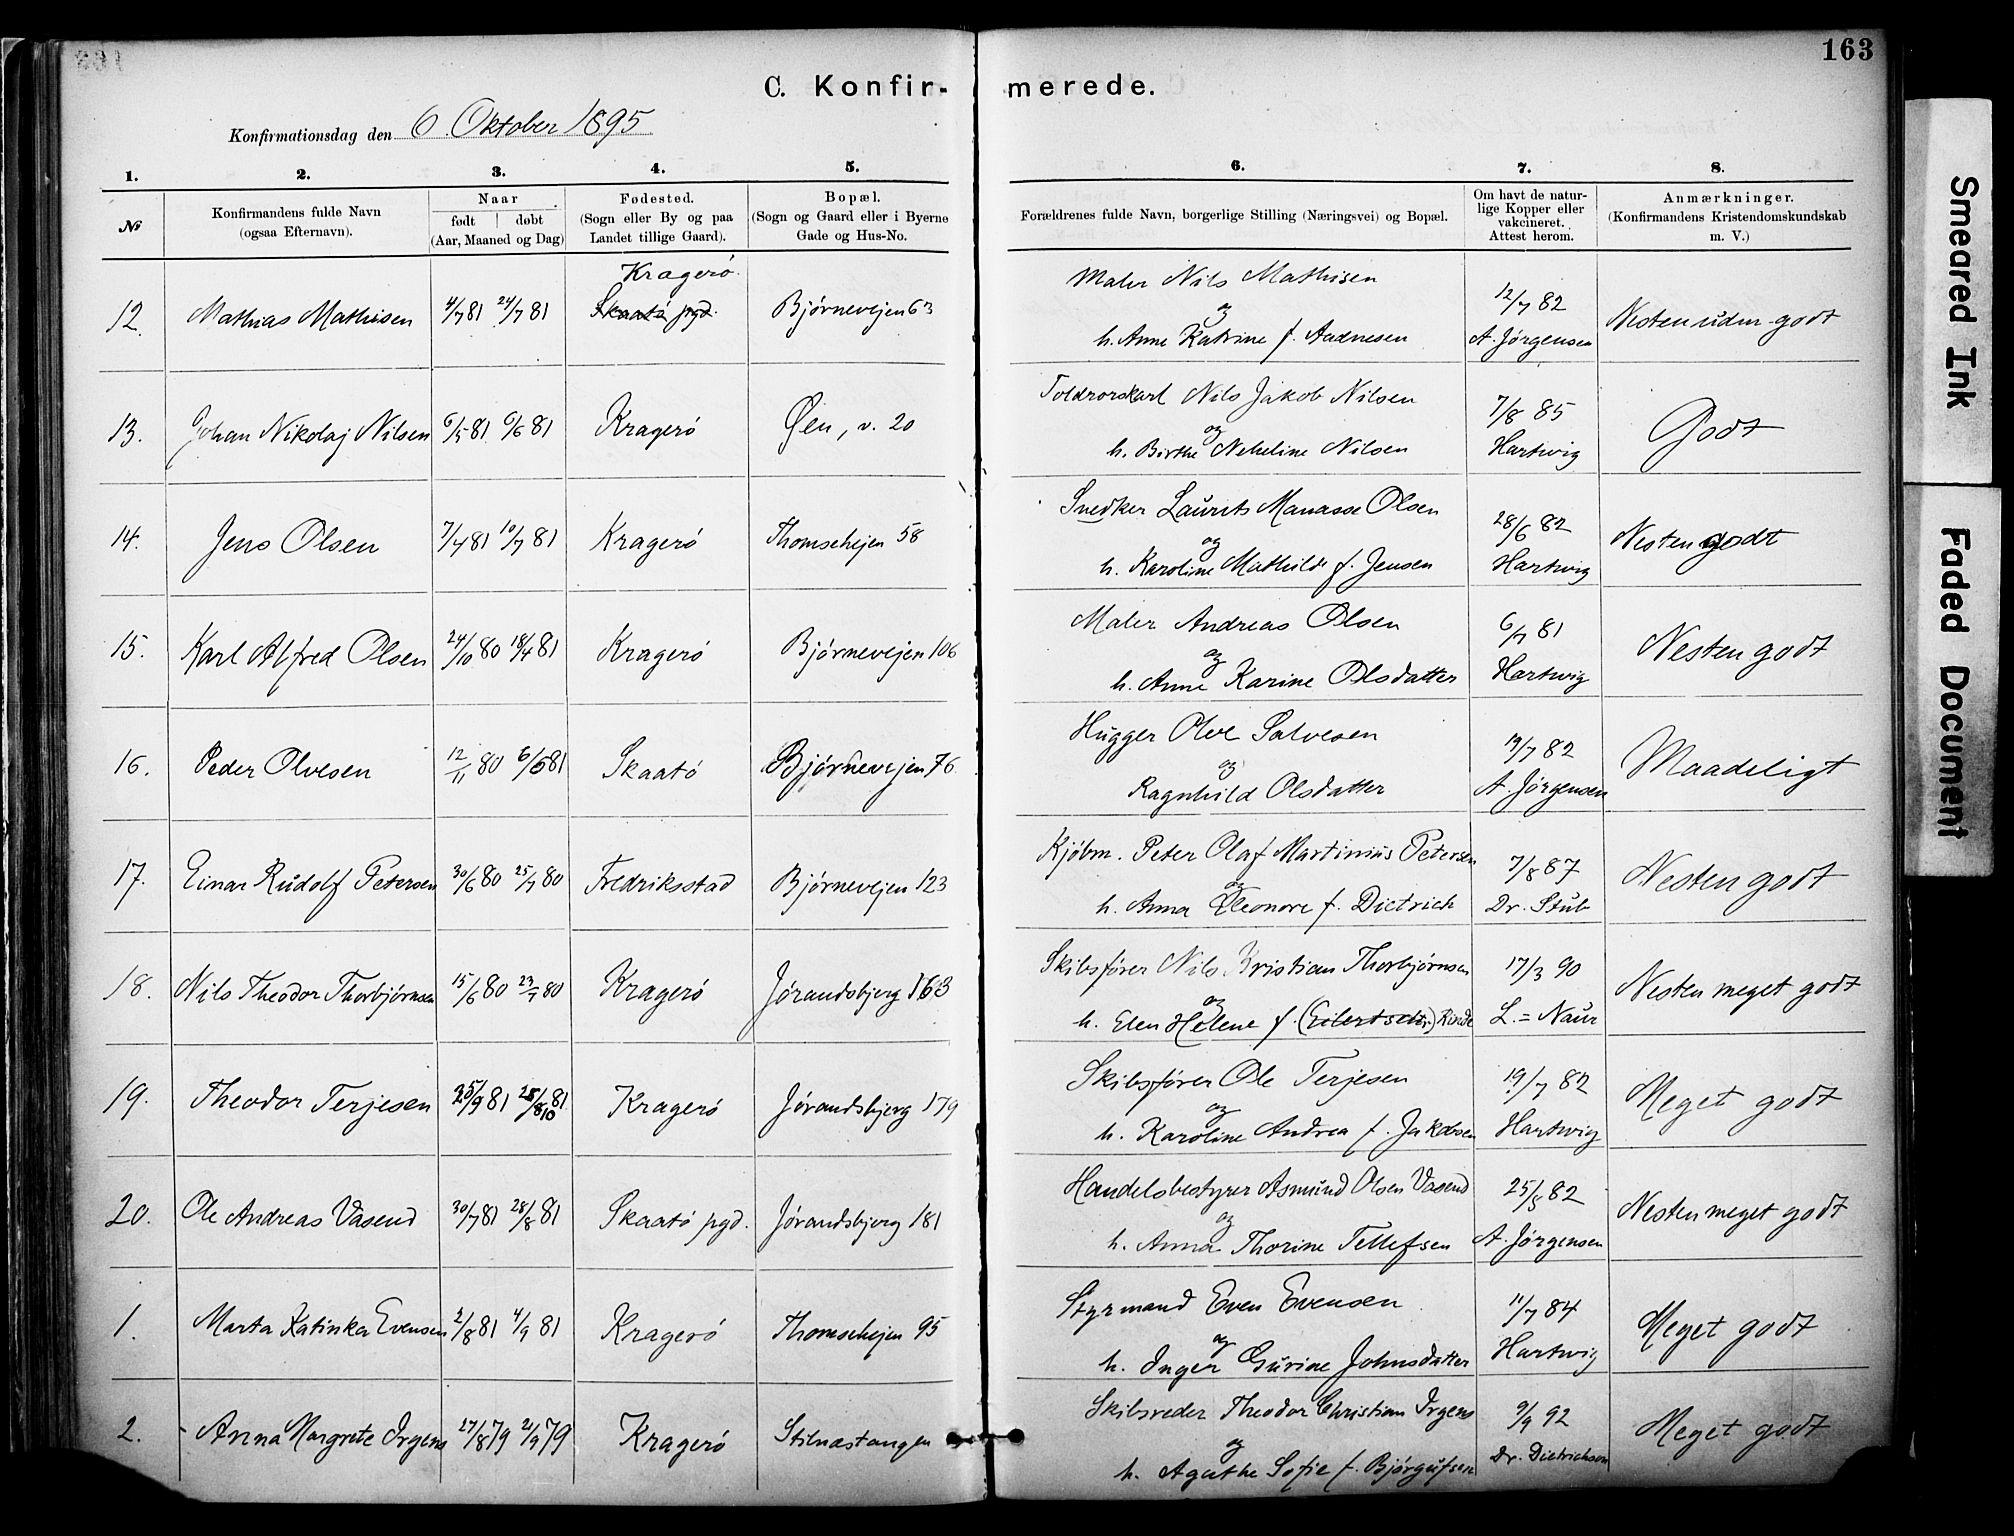 163
C. Konfir- merede.
Konfirmationsdag den 6. Oktober 1895
1. 2. 3. 4. 5. 6. 7. 8.
№
Konfirmandens fulde Navn (ogsaa Efternavn).
Naar født | døbt (Aar, Maaned og Dag)
Fødested. (Sogn eller By og paa Landet tillige Gaard).
Bopæl. (Sogn og Gaard eller i Byerne Gade og Hus-No.
Forældrenes fulde Navn, borgerlige Stilling (Næringsvei) og Bopæl.
Om havt de naturlige Kopper eller vakcineret. Attest herom.
Anmærkninger. (Konfirmandens Kristendomskundskab m. V.)
Kragerø
12. Mathias Mathisen 4/7 81 24/7 81 Skaatø pgd. Bjørnevejen 63 Maler Nils Mathisen 12/7 82 Nesten uden godt
og
h. Anne Katrine f. Aadnesen A. Jørgensen
13. Johan Nikolaj Nilsen 6/5 81 6/6 81 Kragerø Øen, v. 20 Toldrorskarl Nils Jakob Nilsen 7/8 85 Godt
og
h. Birthe Neheline Nilsen Hartwig
14. Jens Olsen 7/4 81 10/7 81 Kragerø Thomsehejen 58 Snedker Laurits Manasse Olsen 28/6 82 Nesten godt
og
h. Karoline Mathilde f. Jensen Hartwig
15. Karl Alfred Olsen 24/10 80 18/4 81 Kragerø Bjørnevejen 106 Maler Andreas Olsen 6/7 81 Nesten godt
og
h. Anne Karine Olsdatter Hartwig
16. Peder Olvesen 12/11 80 6/6 81 Skaatø Bjørnevejen 76 Hugger Olve Salvesen 19/7 82 Maadeligt
og
Ragnhild Olsdatter A. Jørgensen
17. Einar Rudolf Petersen 30/6 80 25/7 80 Fredriksstad Bjørnevejen 123 Kjøbm. Peter Olaf Martinius Petersen 7/8 87 Nesten godt
og
h. Anna Eleonore f. Dietrich Dr. Stub
18. Nils Theodor Thorbjørnsen 15/6 80 23/7 80 Kragerø Jørandsbjerg 163 Skibsfører Nils Kristian Thorbjørnsen 17/3 90 Nesten meget godt
og
h. Elen Helene f. (Eilertsen) Rinde L. = Naur
19. Theodor Terjesen 25/9 81 25/10 81 Kragerø Jørandsbjerg 179 Skibsfører Ole Terjesen 19/7 82 Meget godt
og
h. Karoline Andrea f. Jakobsen Hartwig
20. Ole Andreas Vasend 30/7 81 28/8 81 Skaatø pgd. Jørandsbjerg 181 Handelsbestyrer Asmund Olsen Vasend 25/5 82 Nesten meget godt
og
h. Anna Thorine Tellefsen A. Jørgensen
1. Marta Katinka Evensen 2/8 81 4/9 81 Kragerø Thomsehejen 95 Styrmand Even Evensen 11/7 84 Meget godt
og
h. Inger Gurine Johnsdatter Hartwig
2. Anna Margrete Irgens 27/8 79 21/9 79 Kragerø Stilnæstangen Skibsreder Theodor Christian Irgens 9/9 92 Meget godt
og
h. Agathe Sofie f. Bjørgufsen Dr. Dietrichson
Smeared Ink
Faded Document